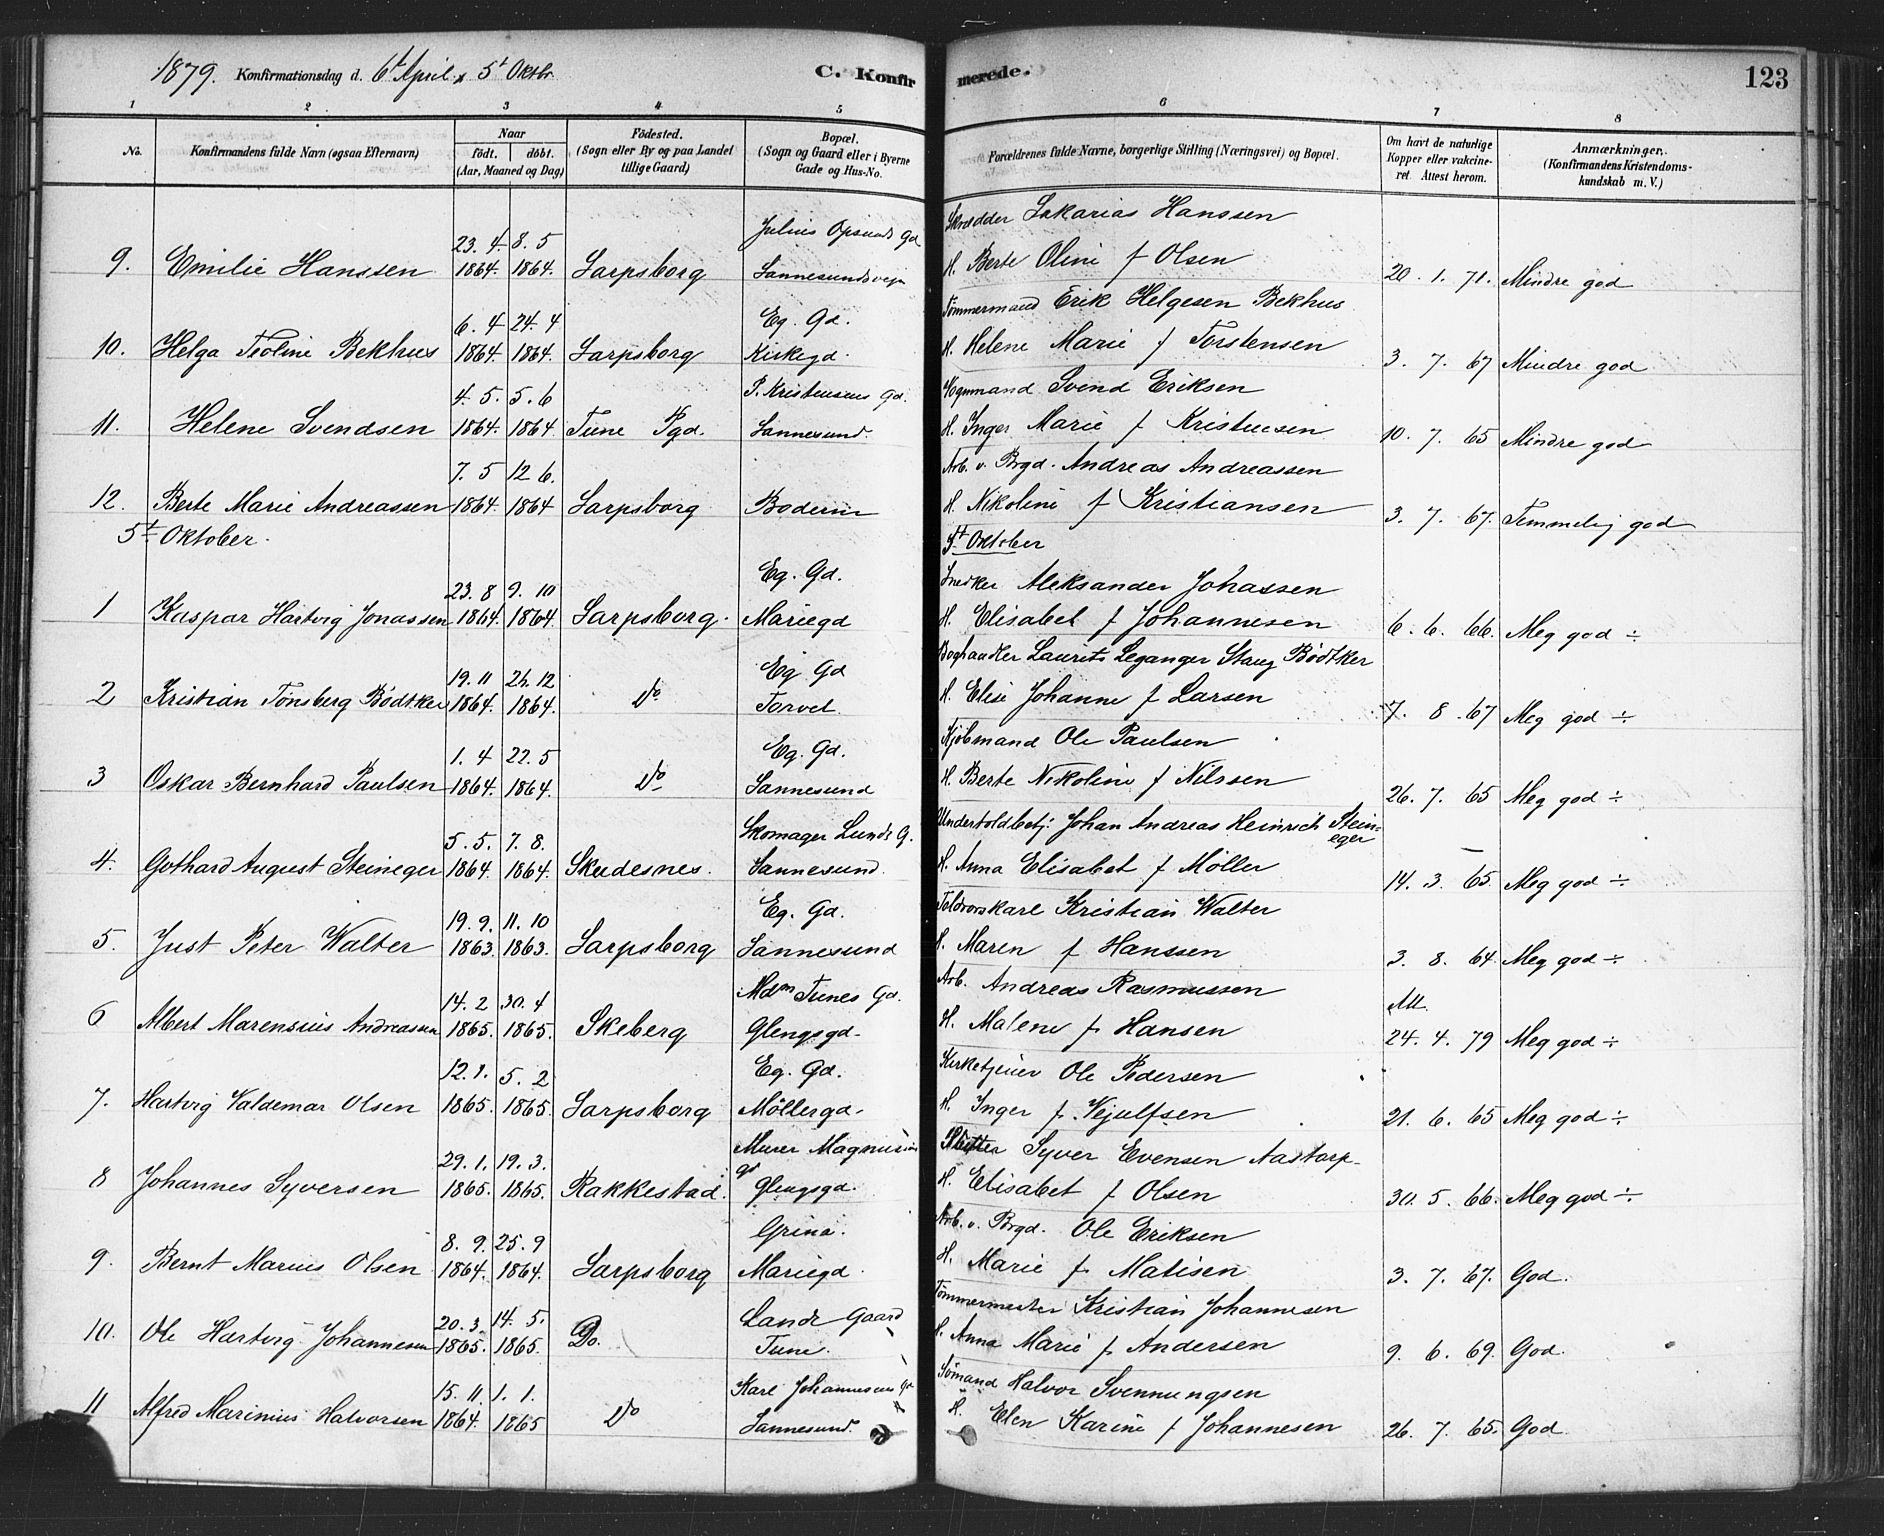 1879. Konfirmationsdag d. 6t April, 5t Oktbr. C. Konfir merede. 123
1 2 3 4 5 6 7 8
No. Konfirmandens fulde Navn (øgsaa Efternavn) Naar födt. döbt. (Aar, Maaned og Dag) Födested. (Sogn eller By og paa Landet tillige Gaard) Bopæl. (Sogn og Gaard eller i Byerne Gade og Hus-No. Forældrenes fulde Navne, borgerlige Stilling (Næringsvei) og Bopæl. Om havt de naturlige Kopper eller vakcineret. Attest herom. Anmærkninger. (Konfirmandens Kristendomskundskab m. V.)
23. 4. 8. 5 Julius Opsunds Gd Skrædder Sakarias Hanssen
9. Emilie Hanssen 1864. 1864. Sarpsborg Sannesundsvejn H. Berte Oline f Olsen 20. 1. 71. Mindre god
6. 4 24. 4 Eg. Gd. Tømmermand Erik Helgesen Bekhus
10. Helga Teoline Bekhus 1864. 1864. Sarpsborg Kirkegd. H. Helene Marie f Torstensen 3. 7. 67 Mindre god
4. 5. 5. 6 P. Kristensens Gd. Vognmand Svend Eriksen
11. Helene Svendsen 1864. 1864. Tune Pgd. Sannesund. H. Inger Marie f Kristensen 10. 7. 65 Mindre god
7. 5 12 6. Arb. v. Brgd. Andreas Andreassen
12. Berte Marie Andreassen 1864. 1864 Sarpsborg H. Nikoline f Kristiansen 3. 7. 67. Temmelig god
5t Oktober. 5t Oktober
23. 8 9. 10 Eg. Gd. Snedker Aleksander Johassen
1 Kaspar Hartvig Jonassen 1864. 1864. Sarpsborg. Mariegd H. Elisabet f Johannesen 6. 6. 66. Meg god ÷
19. 11 26. 12 Eg Gd Boghandler Laurits Leganger Stang Bödtker
2 Kristian Tønsberg Bödtker 1864. 1864. Do Torvet. H. Elise Johanne f Larsen 7. 8. 67 Meg god ÷
1. 4 22. 5 Eg. Gd. Kjöbmand Ole Paulsen
3 Oskar Bernhard Paulsen 1864. 1864. Do Sannesund H. Berte Nikoline f Nilssen 26. 7. 65 Meg god ÷
5. 5. 7. 8. Skomager Lunds G. Undertoldbetj. Johan Andreas Heinrich Steineger
4. Gothard August Steineger 1864. 1864. Skudesnes. Sannesund. H. Anna Elisabet f Møller 14. 3. 65. Meg god ÷
19. 9. 11. 10 Eg. Gd. Toldrorskarl Kristian Walter
5. Just Peter Walter 1863. 1863. Sarpsborg Sannesund H. Maren f Hanssen 3. 8. 64 Meg god ÷
14. 2 30. 4 Mdm Tunes Gd. Arb. Andreas Rasmussen Att.
6 Albert Marensius Andreassen 1865. 1865. Skeberg Glengsgd. H. Malene f. Hansen 24. 4. 79 Meg god ÷
12. 1. 5. 2 Eg. Gd. Kirketjener Ole Pedersen
7. Hartvig Valdemar Olsen 1865. 1865. Sarpsborg Möllergd. H. Inger f. Vejulfsen 21. 6. 65 Meg god ÷
29. 1. 19. 3. Murer Magnusens gd Syver Evensen Aastorp
8 Johannes Syversen 1865. 1865. Rakkestad. Glengsgd. H. Elisabet f Olsen 30. 5. 66. Meg god ÷
8. 9. 25. 9 Grina. Arb. v. Brgd. Ole Eriksen
9. Bernt Marius Olsen 1864. 1864. Sarpsborg Mariegd. H. Marie f Matisen 3. 7. 67. God.
20. 3. 14. 5. Lande Gaard Tømmermester Kristian Johannesen
10. Ole Hartvig Johannesen 1865. 1865. Do. Tune. H. Anna Marie f Andersen 9. 6. 69. God.
15. 11. 1. 1. Karl Johannesens Gd Sømand Halvor Svennungsen
11 Alfred Marinius Halvorsen 1864. 1865 Do Sannesund. H. Elen Karine f Johannesen 26. 7. 65. God.